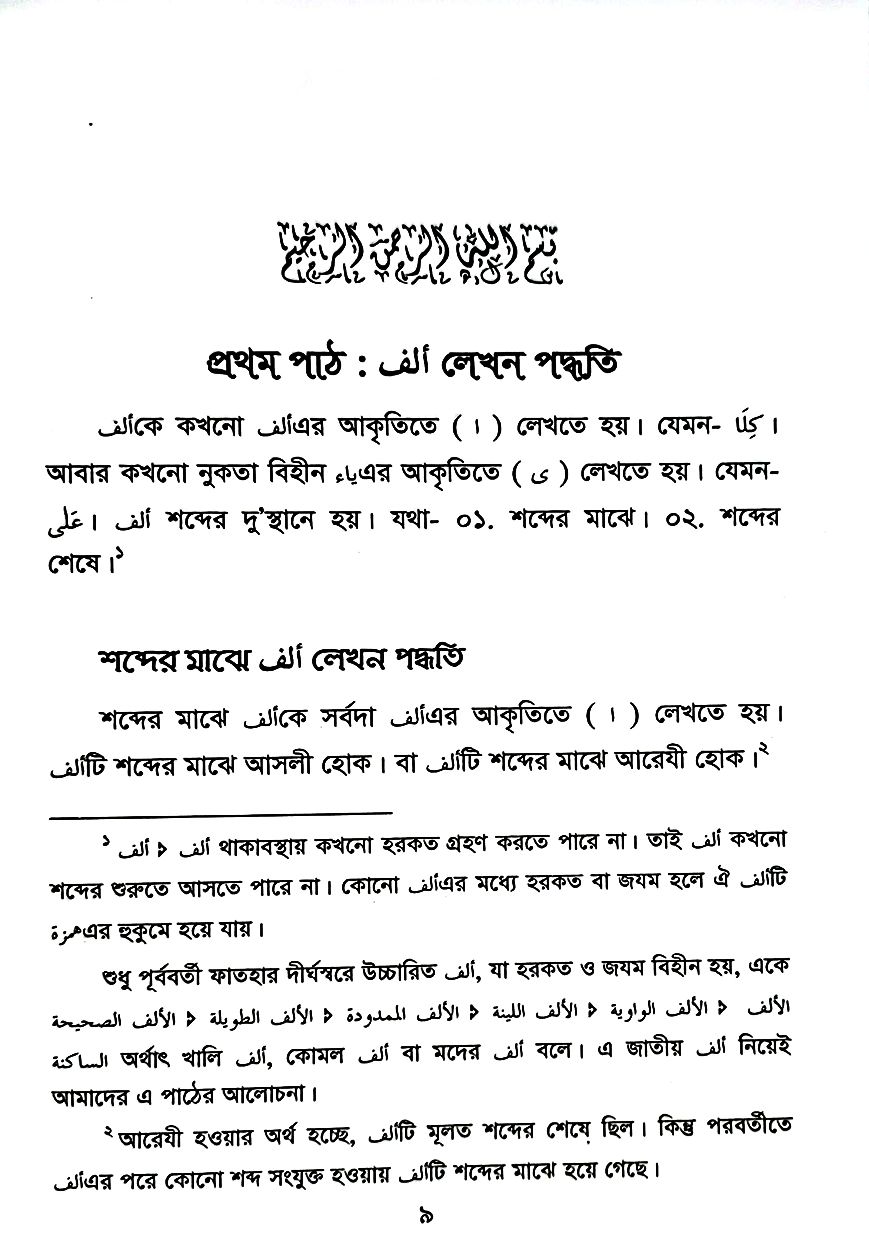 بسم الله الرحمن الرحيم
প্রথম পাঠ : ألف লেখন পদ্ধতি
ألفকে কখনো ألفএর আকৃতিতে ( ا ) লেখতে হয়। যেমন- كِلَا ।
আবার কখনো নুকতা বিহীন ياءএর আকৃতিতে ( ى ) লেখতে হয়। যেমন-
عَلٰى । ألف শব্দের দু'স্থানে হয়। যথা- ০১. শব্দের মাঝে। ০২. শব্দের
শেষে।১
শব্দের মাঝে ألف লেখন পদ্ধতি
শব্দের মাঝে ألفকে সর্বদা ألفএর আকৃতিতে ( ا ) লেখতে হয়।
ألفটি শব্দের মাঝে আসলী হোক। বা ألفটি শব্দের মাঝে আরেযী হোক।২
১ ألف ﴾ ألف থাকাবস্থায় কখনো হরকত গ্রহণ করতে পারে না। তাই ألف কখনো
শব্দের শুরুতে আসতে পারে না। কোনো ألفএর মধ্যে হরকত বা জযম হলে ঐ ألفটি
همزةএর হুকুমে হয়ে যায়।
শুধু পূর্ববর্তী ফাতহার দীর্ঘস্বরে উচ্চারিত ألف, যা হরকত ও জযম বিহীন হয়, একে
الألف الصحيحة ﴾ الألف الطويلة ﴾ الألف الممدودة ﴾ الألف اللينة ﴾ الألف الواوية ﴾ الألف
الساكنة অর্থাৎ খালি ألف, কোমল ألف বা মদের ألف বলে। এ জাতীয় ألف নিয়েই
আমাদের এ পাঠের আলোচনা।
২ আরেযী হওয়ার অর্থ হচ্ছে, ألفটি মূলত শব্দের শেষে ছিল। কিন্তু পরবর্তীতে
ألفএর পরে কোনো শব্দ সংযুক্ত হওয়ায় ألفটি শব্দের মাঝে হয়ে গেছে।
৯